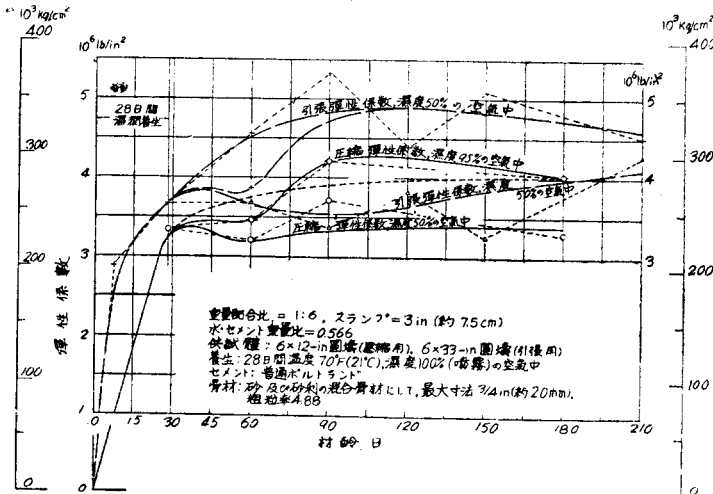 10³kg/cm²
400
300
200
100
0
10⁶ lb/in²
5
4
3
2
1
0
彈性係數
28日間
濕潤養生
引張彈性係數,濕度50%の空氣中
圧縮彈性係數,濕度95%の空氣中
引張彈性係數,濕度
50%の空氣中
圧縮彈性係數濕度50%の空氣中
重量配合比 = 1:6, スランプ=3in (約7.5cm)
水・セメント重量比=0.566
供試體: 6×12-in圓壔(壓縮用), 6×33-in圓壔(引張用)
養生: 28日間温度70°F(21℃),濕度100%(噴霧)の空氣中
セメント: 普通ポルトランド
骨材: 砂及び砂利の混合骨材にして,最大寸法3/4in(約20mm),
粗粒率4.88
0
15
30
45
60
90
120
150
180
210
材齡 日
10⁶lb/in²
5
4
3
10³kg/cm²
400
300
200
100
0